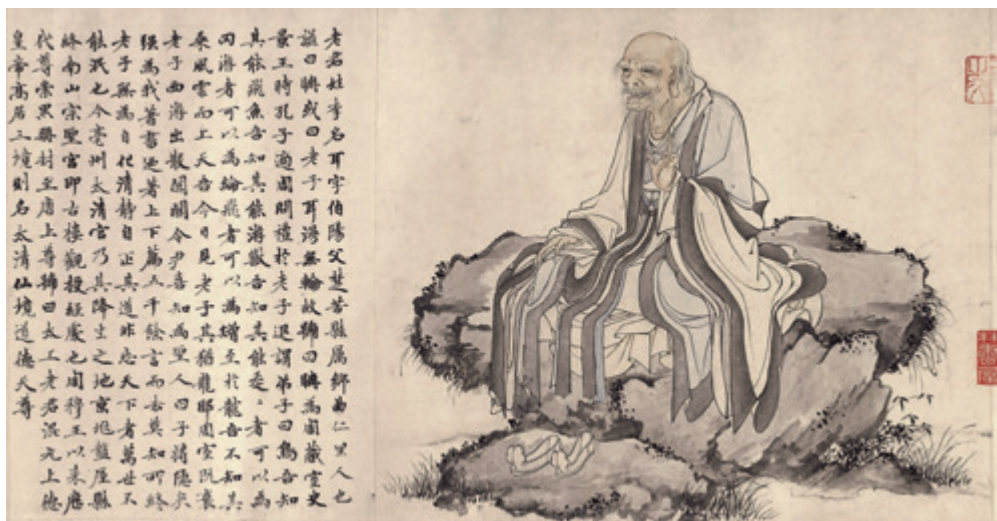 老君姓李名耳字伯陽父楚苦縣厲鄉曲仁里人也
謚曰聃或曰老子耳漫無輪故號曰聃為周藏室史
景王時孔子適周問禮於老子退謂弟子曰鳥吾知
其能飛魚吾知其能游獸吾知其能走〻者可以為
罔游者可以為綸飛者可以為矰至於龍吾不知其
乘風雲而上天吾今日見老子其猶龍耶周室既衰
老子西游出散關關令尹喜知為聖人曰子將隱矣
強為我著書迺著上下篇五千餘言而去莫知所終
老子無為自化清靜自正其道非忘天下者萬世不
能泯也今亳州太清宮乃其降生之地京兆盩厔縣
終南山宗聖宮即古樓觀授經處也周穆王以來歷
代尊崇累封至唐上尊號曰太上老君混元上德
皇帝高居三境則名太清仙境道德天尊